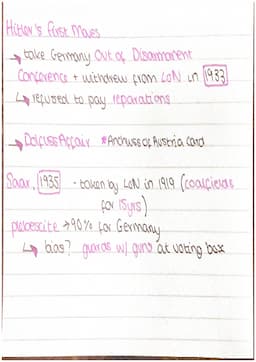 Hitler's First Moves
→ take Germany Out of Disarmament
Conference + withdrew from LoN in 1933
↳ refused to pay reparations
→ Dolfuss Affair *Anchuss of Austria card
Saar, 1935 - taken by LoN in 1919 (coalfields
for 15yrs)
plebescite → 90% for Germany
↳ bias? guards w/ guns at voting box